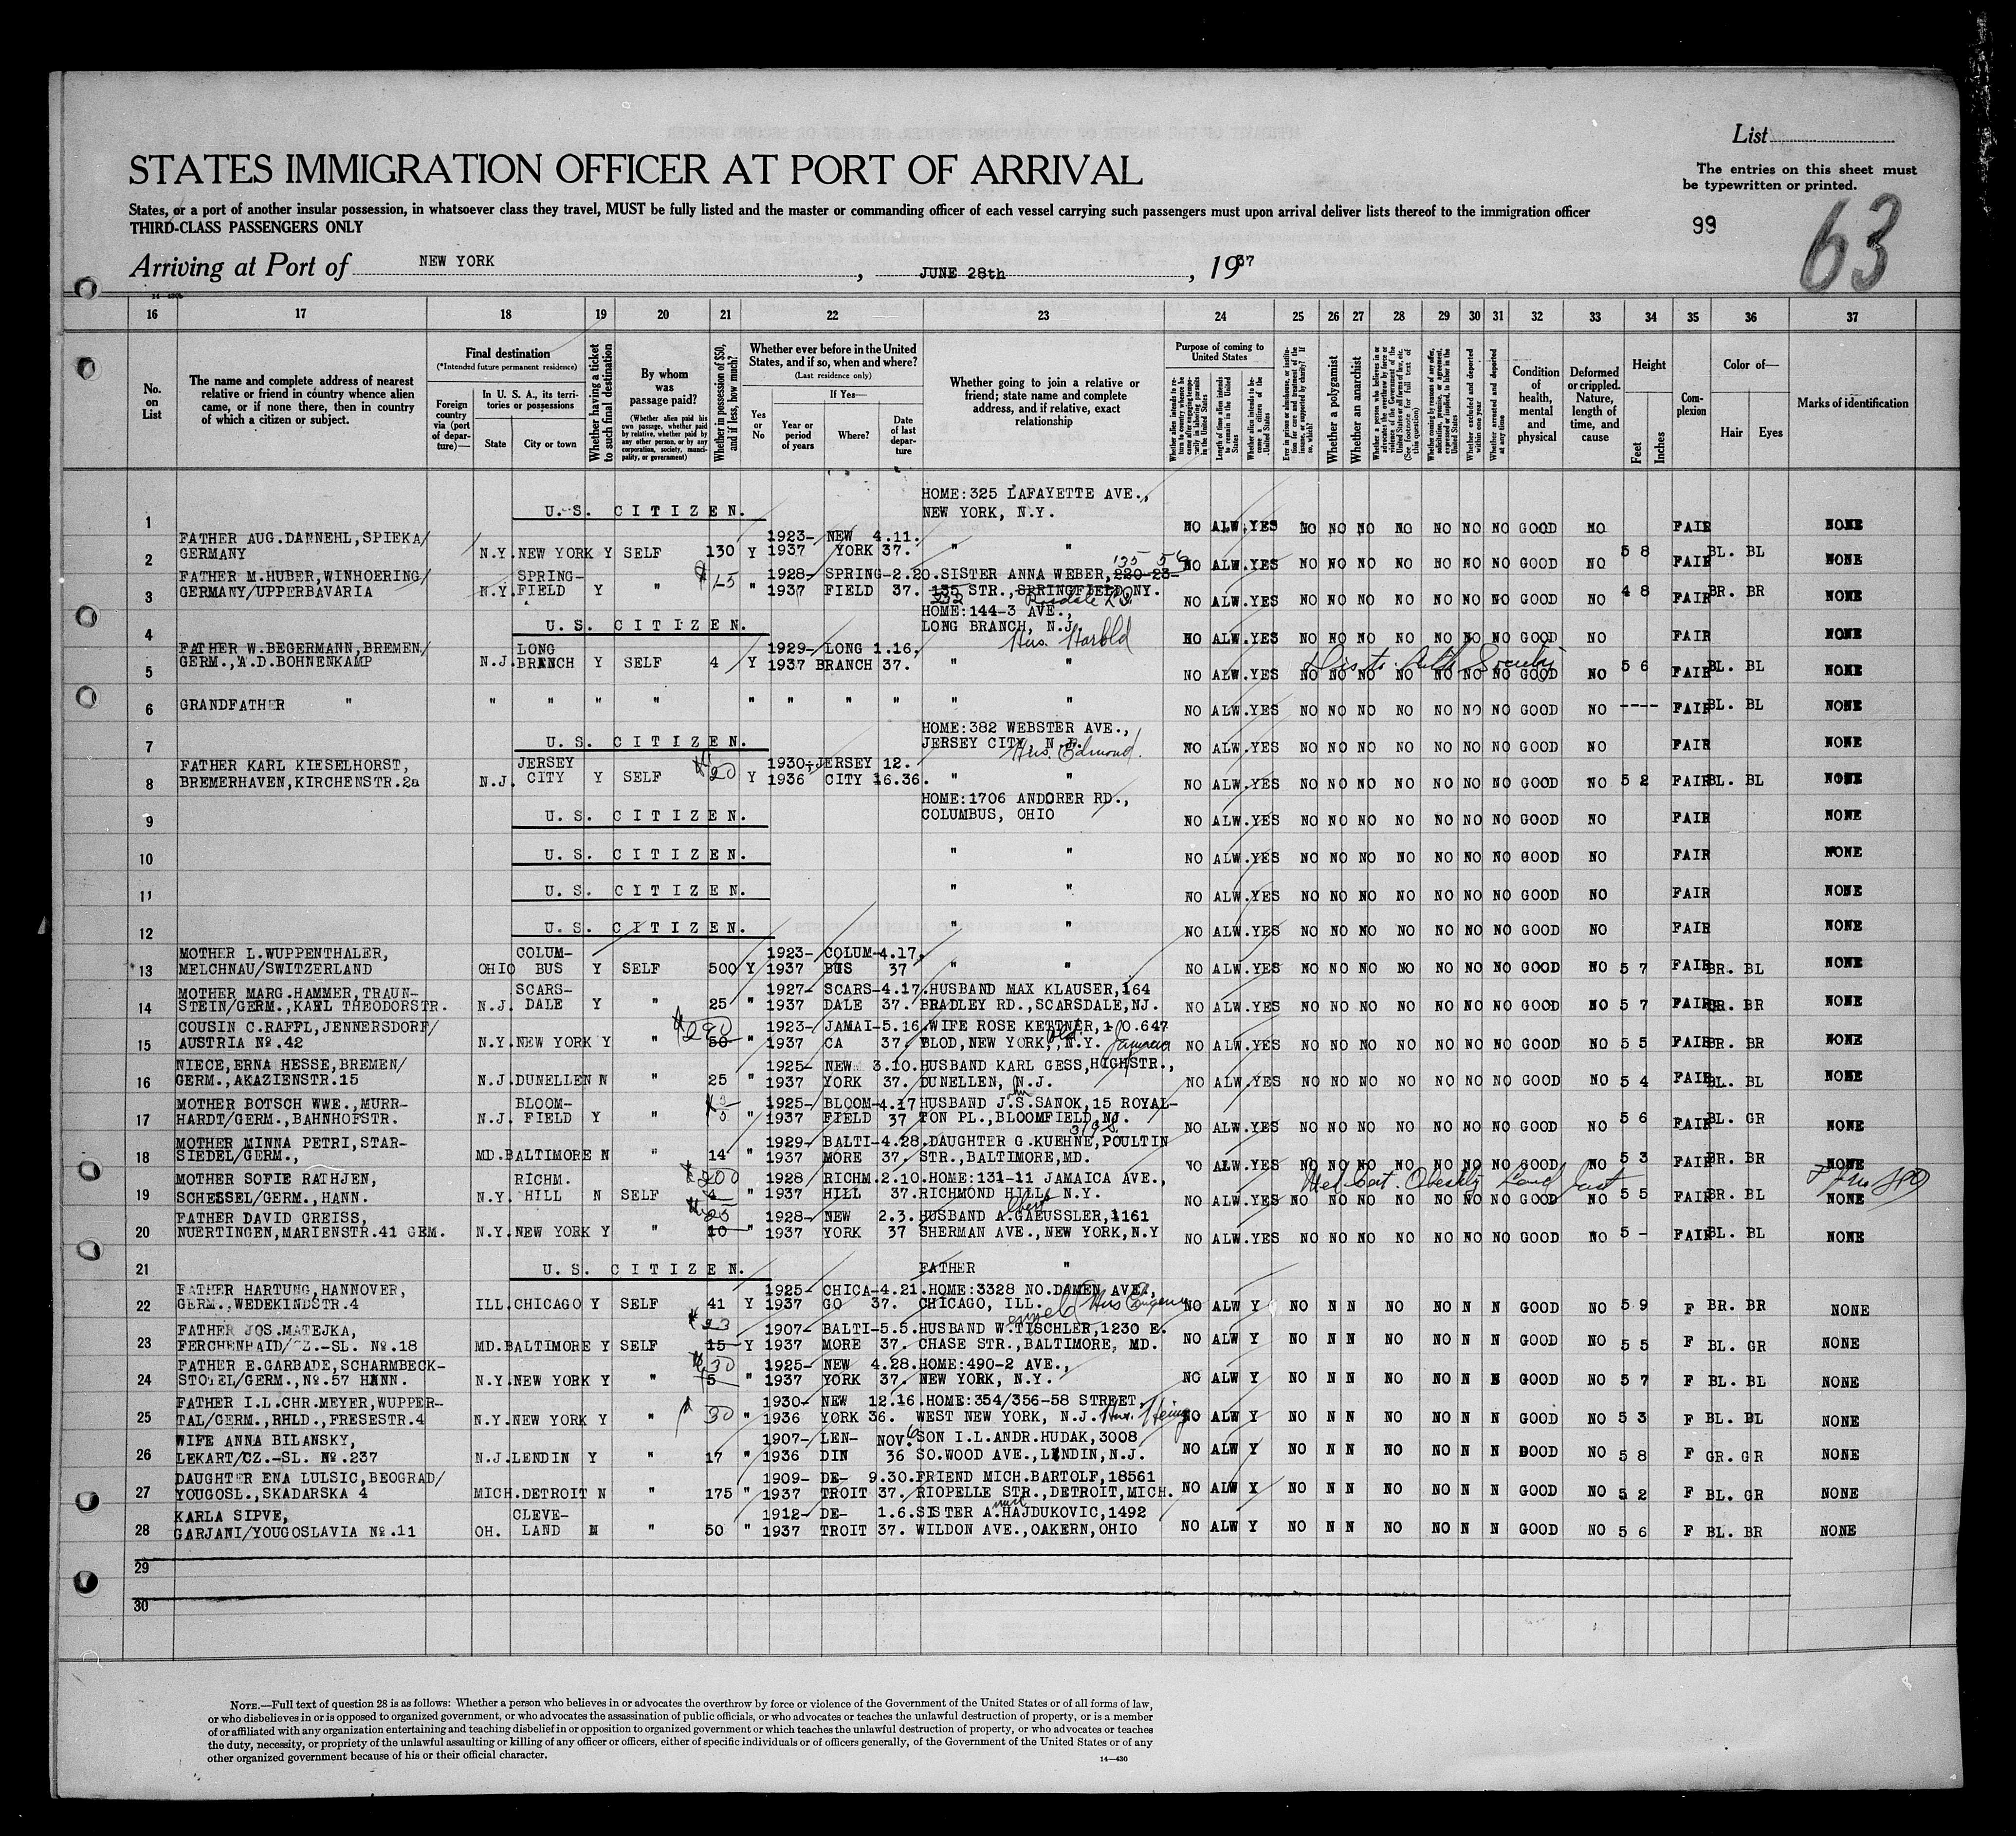 List
STATES IMMIGRATION OFFICER AT PORT OF ARRIVAL
The entries on this sheet must
be typewritten or printed.
States, or a port of another insular possession, in whatsoever class they travel, MUST be fully listed and the master or commanding officer of each vessel carrying such passengers must upon arrival deliver lists thereof to the immigration officer
THIRD-CLASS PASSENGERS ONLY
99
63
Arriving at Port of NEW YORK, JUNE 28th, 1937
16 17 18 19 20 21 22 23 24 25 26 27 28 29 30 31 32 33 34 35 36 37
No. on List
The name and complete address of nearest relative or friend in country whence alien came, or if none there, then in country of which a citizen or subject.
Final destination
(*Intended future permanent residence)
Foreign country via (port of departure)—
In U. S. A., its territories or possessions
State
City or town
Whether having a ticket to such final destination
By whom was passage paid?
(Whether alien paid his own passage, whether paid by relative, whether paid by any other person, or by any corporation, society, municipality, or government)
Whether in possession of $50, and if less, how much?
Whether ever before in the United States, and if so, when and where?
(Last residence only)
Yes or No
If Yes—
Year or period of years
Where?
Date of last departure
Whether going to join a relative or friend; state name and complete address, and if relative, exact relationship
Purpose of coming to United States
Length of time alien intends to remain in the United States
Whether alien intends to become a citizen of the United States
Whether a polygamist
Whether an anarchist
Whether excluded and deported within one year
Whether arrested and deported at any time
Condition of health, mental and physical
Deformed or crippled. Nature, length of time, and cause
Height
Feet
Inches
Complexion
Color of—
Hair
Eyes
Marks of identification
HOME:325 LAFAYETTE AVE.,
1 U.S. CITIZEN. NEW YORK, N.Y. NO ALW.YES NO NO NO NO NO NO NO GOOD NO FAIR NONE
FATHER AUG.DANNEHL,SPIEKA/ 1923- NEW 4.11.
2 GERMANY N.Y. NEW YORK Y SELF 130 Y 1937 YORK 37. " " NO ALW.YES NO NO NO NO NO NO NO GOOD NO 5 8 FAIR BL. BL NONE
FATHER M.HUBER,WINHOERING/ SPRING- 1928- SPRING-2.20.SISTER ANNA WEBER,220-23-
3 GERMANY/UPPERBAVARIA N.Y. FIELD Y " 15 " 1937 FIELD 37. 135 STR.,SPRINGFIELD,NY. NO ALW.YES NO NO NO NO NO NO NO GOOD NO 4 8 FAIR BR. BR NONE
HOME:144-3 AVE.,
4 U.S. CITIZEN. LONG BRANCH, N.J. Hus. Harold NO ALW.YES NO NO NO NO NO NO NO GOOD NO FAIR NONE
FATHER W.BEGERMANN,BREMEN/ LONG 1929- LONG 1.16,
5 GERM.,A.D.BOHNENKAMP N.J. BRANCH Y SELF 4 Y 1937 BRANCH 37. " " NO ALW.YES NO NO NO NO NO NO NO GOOD NO 5 6 FAIR BL. BL NONE
6 GRANDFATHER " " " " " " " " " " " NO ALW.YES NO NO NO NO NO NO NO GOOD NO ---- FAIR BL. BL NONE
HOME:382 WEBSTER AVE.,
7 U.S. CITIZEN. JERSEY CITY, N.J. Hus. Edmond. NO ALW.YES NO NO NO NO NO NO NO GOOD NO FAIR NONE
FATHER KARL KIESELHORST, JERSEY 1930- JERSEY 12.
8 BREMERHAVEN,KIRCHENSTR.2a N.J. CITY Y SELF 20 Y 1936 CITY 16.36. " " NO ALW.YES NO NO NO NO NO NO NO GOOD NO 5 2 FAIR BL. BL NONE
HOME:1706 ANDORER RD.,
9 U.S. CITIZEN. COLUMBUS, OHIO NO ALW.YES NO NO NO NO NO NO NO GOOD NO FAIR NONE
10 U.S. CITIZEN. " " NO ALW.YES NO NO NO NO NO NO NO GOOD NO FAIR NONE
11 U.S. CITIZEN. " " NO ALW.YES NO NO NO NO NO NO NO GOOD NO FAIR NONE
12 U.S. CITIZEN. " " NO ALW.YES NO NO NO NO NO NO NO GOOD NO FAIR NONE
MOTHER L.WUPPENTHALER, COLUM- 1923- COLUM-4.17,
13 MELCHNAU/SWITZERLAND OHIO BUS Y SELF 500 Y 1937 BUS 37 " " NO ALW.YES NO NO NO NO NO NO NO GOOD NO 5 7 FAIR BR. BL NONE
MOTHER MARG.HAMMER,TRAUN- SCARS- 1927- SCARS-4.17.HUSBAND MAX KLAUSER,164
14 STEIN/GERM.,KARL THEODORSTR. N.J. DALE Y " 25 " 1937 DALE 37. BRADLEY RD.,SCARSDALE,NJ. NO ALW.YES NO NO NO NO NO NO NO GOOD NO 5 7 FAIR BR. BR NONE
COUSIN C.RAFFL,JENNERSDORF/ 290 1923- JAMAI-5.16.WIFE ROSE KETTNER,1-0.647
15 AUSTRIA №.42 N.Y. NEW YORK Y " 50 " 1937 CA 37. BLOD,NEW YORK,,N.Y. Jamaica NO ALW.YES NO NO NO NO NO NO NO GOOD NO 5 5 FAIR BR. BR NONE
NIECE,ERNA HESSE,BREMEN/ 1925- NEW 3.10.HUSBAND KARL GESS,HIGHSTR.,
16 GERM.,AKAZIENSTR.15 N.J. DUNELLEN N " 25 " 1937 YORK 37. DUNELLEN, N.J. NO ALW.YES NO NO NO NO NO NO NO GOOD NO 5 4 FAIR BL. BL NONE
MOTHER BOTSCH WWE.,MURR- BLOOM- 1925- BLOOM-4.17 HUSBAND J.S.SANOK,15 ROYAL-
17 HARDT/GERM.,BAHNHOFSTR. N.J. FIELD Y " " 1937 FIELD 37 TON PL.,BLOOMFIELD,NJ. NO ALW.YES NO NO NO NO NO NO NO GOOD NO 5 6 FAIR BL. GR NONE
MOTHER MINNA PETRI,STAR- 1929- BALTI-4.28.DAUGHTER G.KUEHNE,POULTIN
18 SIEDEL/GERM., MD. BALTIMORE N " 14 " 1937 MORE 37. STR.,BALTIMORE,MD. NO ALW.YES NO NO NO NO NO NO NO GOOD NO 5 3 FAIR BR. BR NONE
MOTHER SOFIE RATHJEN, RICHM. 200 1928 RICHM.2.10.HOME:131-11 JAMAICA AVE.,
19 SCHESSEL/GERM.,HANN. N.Y. HILL N SELF 4 " 1937 HILL 37. RICHMOND HILL, N.Y. NO ALW.YES NO NO NO NO NO NO NO GOOD NO 5 5 FAIR BR. BL NONE
FATHER DAVID GREISS, 25 1928- NEW 2.3. HUSBAND A.GAEUSSLER,1161
20 NUERTINGEN,MARIENSTR.41 GEM. N.Y. NEW YORK Y " 10 " 1937 YORK 37 SHERMAN AVE.,NEW YORK,N.Y NO ALW.YES NO NO NO NO NO NO NO GOOD NO 5 - FAIR BL. BL NONE
21 U.S. CITIZEN. FATHER "
FATHER HARTUNG,HANNOVER, 1925- CHICA-4.21.HOME:3328 NO.DAMEN AVE.,
22 GERM.,WEDEKINDSTR.4 ILL. CHICAGO Y SELF 41 Y 1937 GO 37. CHICAGO, ILL. NO ALW Y NO N N NO NO N N GOOD NO 5 9 F BR. BR NONE
FATHER JOS.MATEJKA, 23 1907- BALTI-5.5.HUSBAND W.TISCHLER,1230 E.
23 FERCHENHAID/CZ.-SL. №.18 MD. BALTIMORE Y SELF 15 Y 1937 MORE 37. CHASE STR.,BALTIMORE, MD. NO ALW Y NO N N NO NO N N GOOD NO 5 5 F BL. GR NONE
FATHER E.GARBADE,SCHARMBECK- 30 1925- NEW 4.28.HOME:490-2 AVE.,
24 STOTEL/GERM.,№.57 HANN. N.Y. NEW YORK Y " 5 " 1937 YORK 37. NEW YORK, N.Y. NO ALW Y NO N N NO NO N N GOOD NO 5 7 F BL. BL NONE
FATHER I.L.CHR.MEYER,WUPPER- 1930- NEW 12.16.HOME:354/356-58 STREET,
25 TAL/GERM.,RHLD.,FRESESTR.4 N.Y. NEW YORK Y " 30 " 1936 YORK 36. WEST NEW YORK, N.J. NO ALW Y NO N N NO NO N N GOOD NO 5 3 F BL. BL NONE
WIFE ANNA BILANSKY, 1907- LEN- NOV. 6 SON I.L.ANDR.HUDAK,3008
26 LEKART/CZ.-SL. №.237 N.J. LENDIN Y " 17 " 1936 DIN 36 SO.WOOD AVE.,LENDIN,N.J. NO ALW Y NO N N NO NO N N GOOD NO 5 8 F GR. GR NONE
DAUGHTER ENA LULSIC,BEOGRAD/ 1909- DE- 9.30.FRIEND MICH.BARTOLF,18561
27 YOUGOSL.,SKADARSKA 4 MICH. DETROIT N " 175 " 1937 TROIT 37. RIOPELLE STR.,DETROIT,MICH. NO ALW Y NO N N NO NO N N GOOD NO 5 2 F BL. GR NONE
KARLA SIPVE, CLEVE- 1912- DE- 1.6.SISTER A.HAJDUKOVIC,1492
28 GARJANI/YOUGOSLAVIA №.11 OH. LAND N " 50 " 1937 TROIT 37. WILDON AVE.,OAKERN,OHIO NO ALW Y NO N N NO NO N N GOOD NO 5 6 F BL. BR NONE
29
30
NOTE.—Full text of question 28 is as follows: Whether a person who believes in or advocates the overthrow by force or violence of the Government of the United States or of all forms of law,
or who disbelieves in or is opposed to organized government, or who advocates the assassination of public officials, or who advocates or teaches the unlawful destruction of property, or is a member
of or affiliated with any organization entertaining and teaching disbelief in or opposition to organized government or which teaches the unlawful destruction of property, or who advocates or teaches
the duty, necessity, or propriety of the unlawful assaulting or killing of any officer or officers, either of specific individuals or of officers generally, of the Government of the United States or of any
other organized government because of his or their official character.
14—430